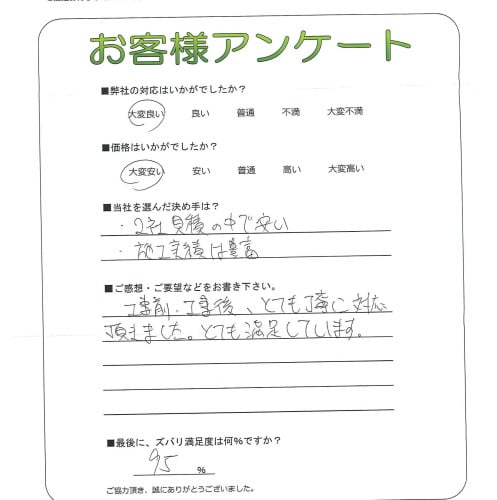 お客様アンケート
■弊社の対応はいかがでしたか？
大変良い 良い 普通 不満 大変不満
■価格はいかがでしたか？
大変安い 安い 普通 高い 大変高い
■当社を選んだ決め手は？
・2社見積の中で安い
・施工実績は豊富
■ご感想・ご要望などをお書き下さい。
工事前、工事後、とても丁寧に対応
頂きました。とても満足しています。
■最後に、ズバリ満足度は何%ですか？
95 %
ご協力頂き、誠にありがとうございました。